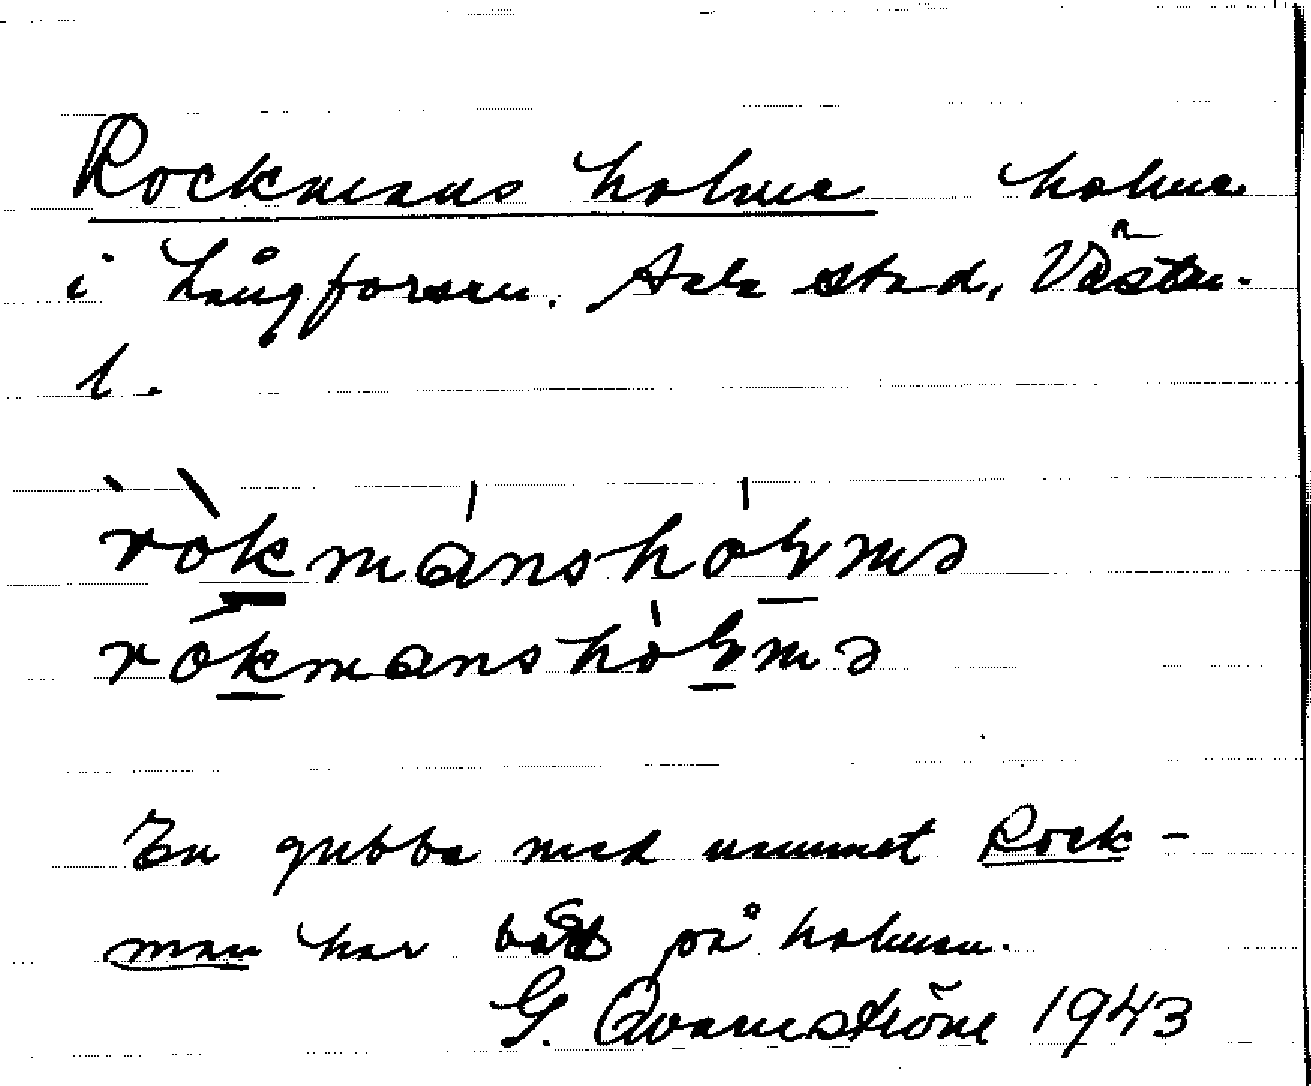 Rockmans holme holme
i Långforsen. Sala stad, Västm.
l.
ròkmánshólmə
rókmanshòlmə
En gubbe med namnet Rock-
man har bott på holmen.
G. Qvarnström 1943